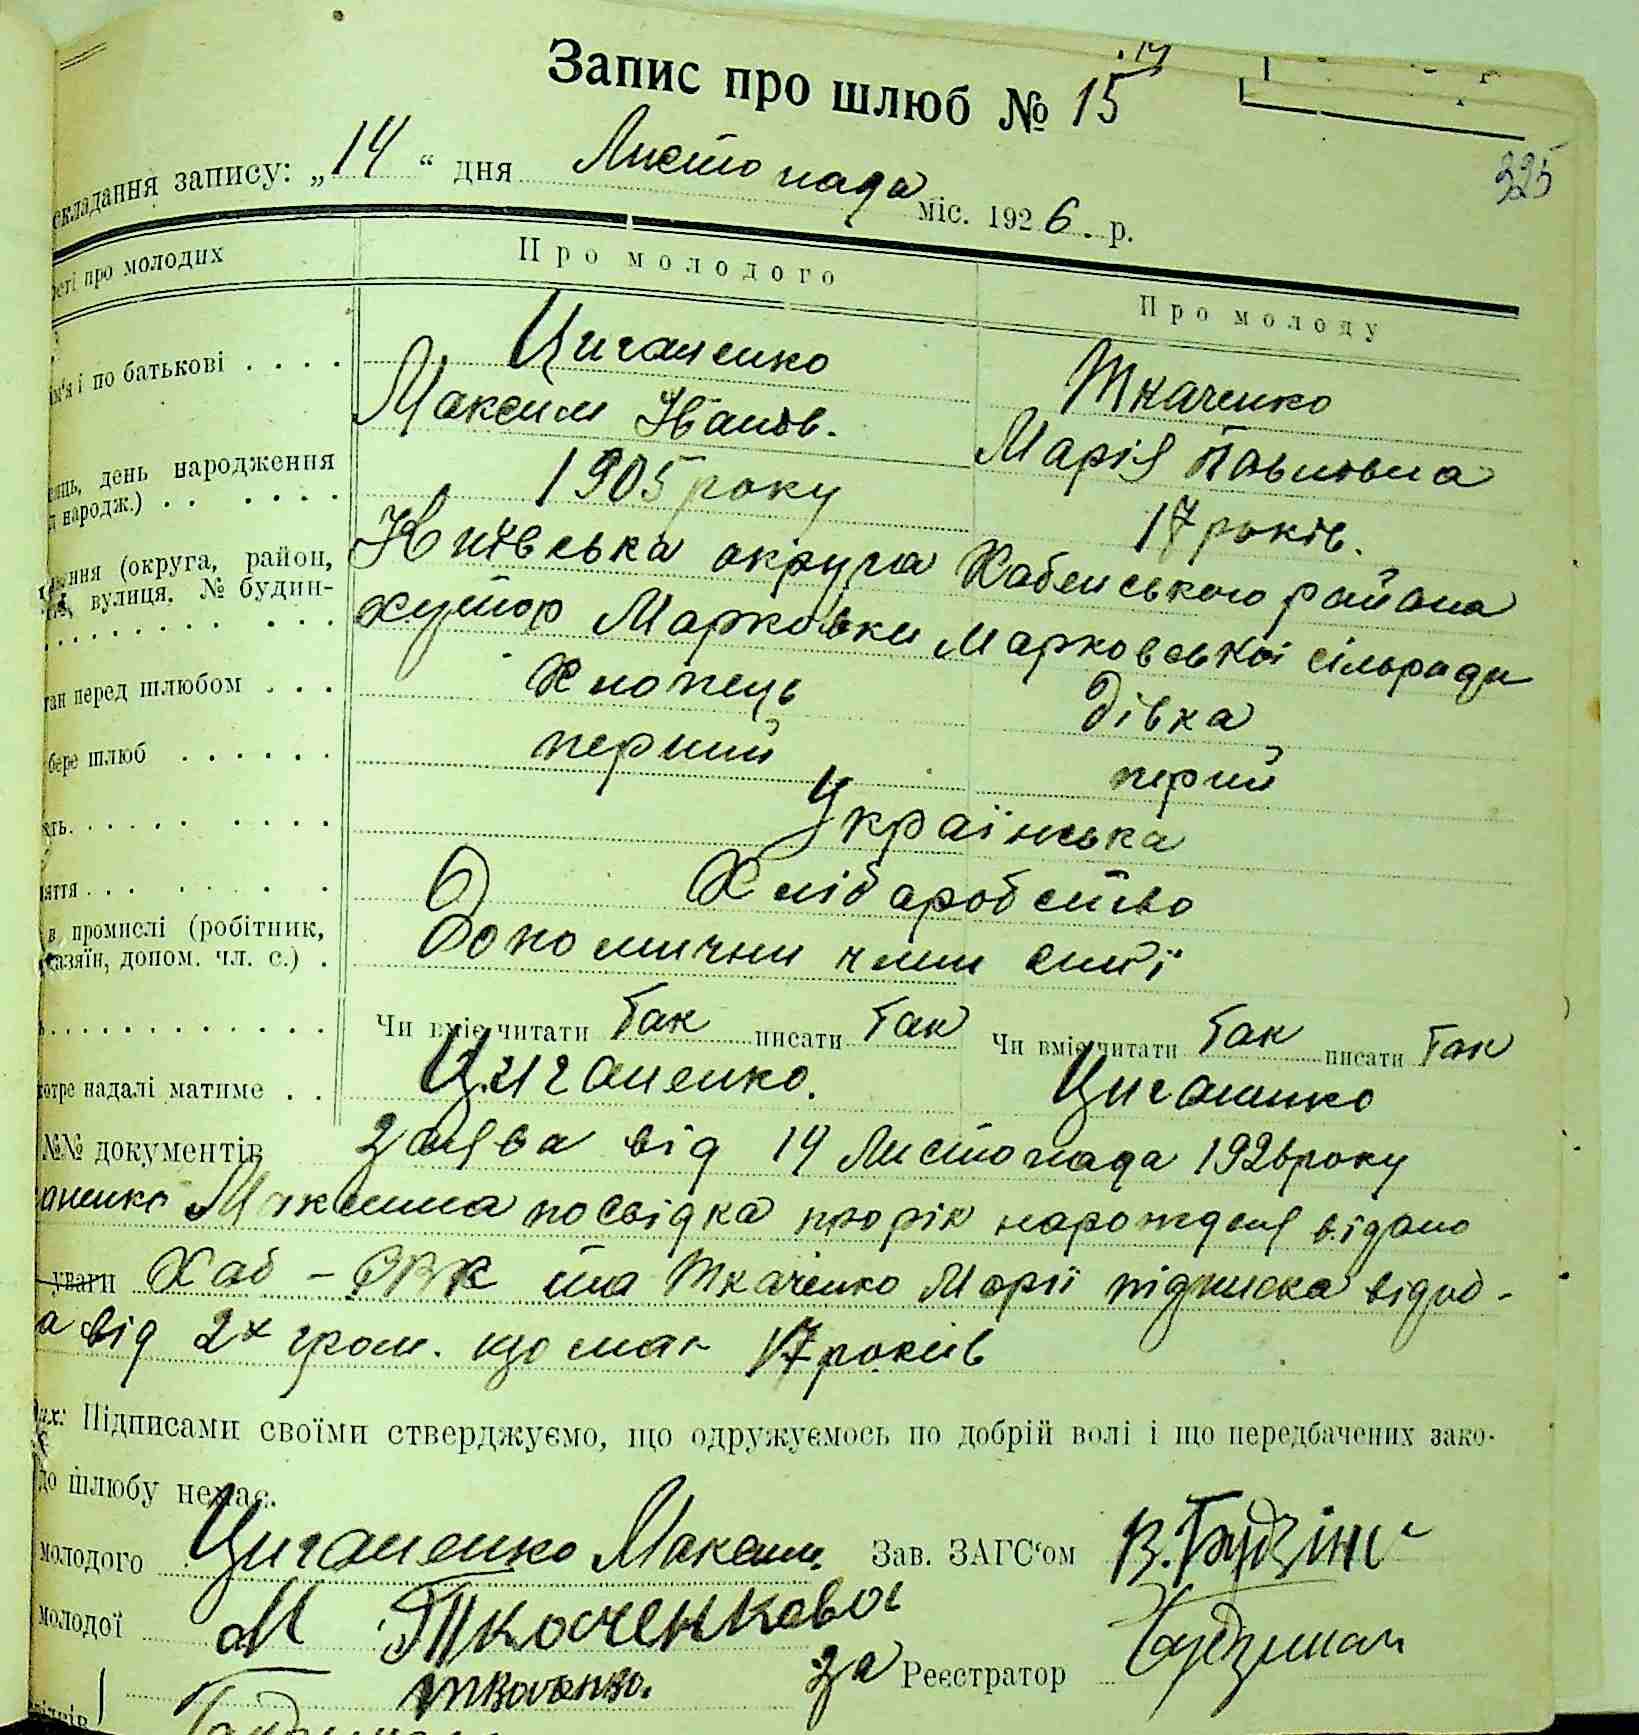 Запис про шлюб № 15
325
складання запису: „14“ дня Листопада міс. 1926. р.
про молодих Про молодого Про молоду
Циганенко Ткаченко
і по батькові . . . . Максим Іванов. Марія Павловна
день народження 1905 року 17 років.
народж.) . . . . . .
(округа, район, Київська округа Хабенського района
вулиця, № будин- хутор Марковки Марковської сільради
перед шлюбом . . . Хлопець дівка
бере шлюб . . . . . . перший перий
Українська
Хлібаробство
в промислі (робітник, Допомични члени сім'ї
допом. чл. с.) .
Чи вміє читати Так писати Так Чи вміє читати Так писати Так
надалі матиме . . Циганенко. Циганенко
№№ документів заява від 14 Листопада 1926 року
Максима посвідка про рік нарождения відано
уваги Хаб - РВК та Ткаченко Марії підписка
від 2х гром. що має 17 років
Підписами своїми стверджуємо, що одружуємось по добрій волі і що передбачених зако-
до шлюбу немає.
молодого Циганенко Максим Зав. ЗАГС‘ом
молодої М Ткаченкова
за Реєстратор